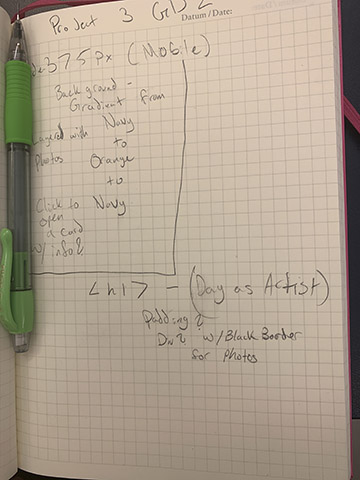 Project 3 Grid
Datum / Date:
375px (Mobile)
Background -
Gradient from
Layered with Navy
to
Photos Orange
to
Click to Navy
open
a card
w/ info?
<h1> - (Day as Artist)
Padding ?
Div? w/ Black Border
for photos